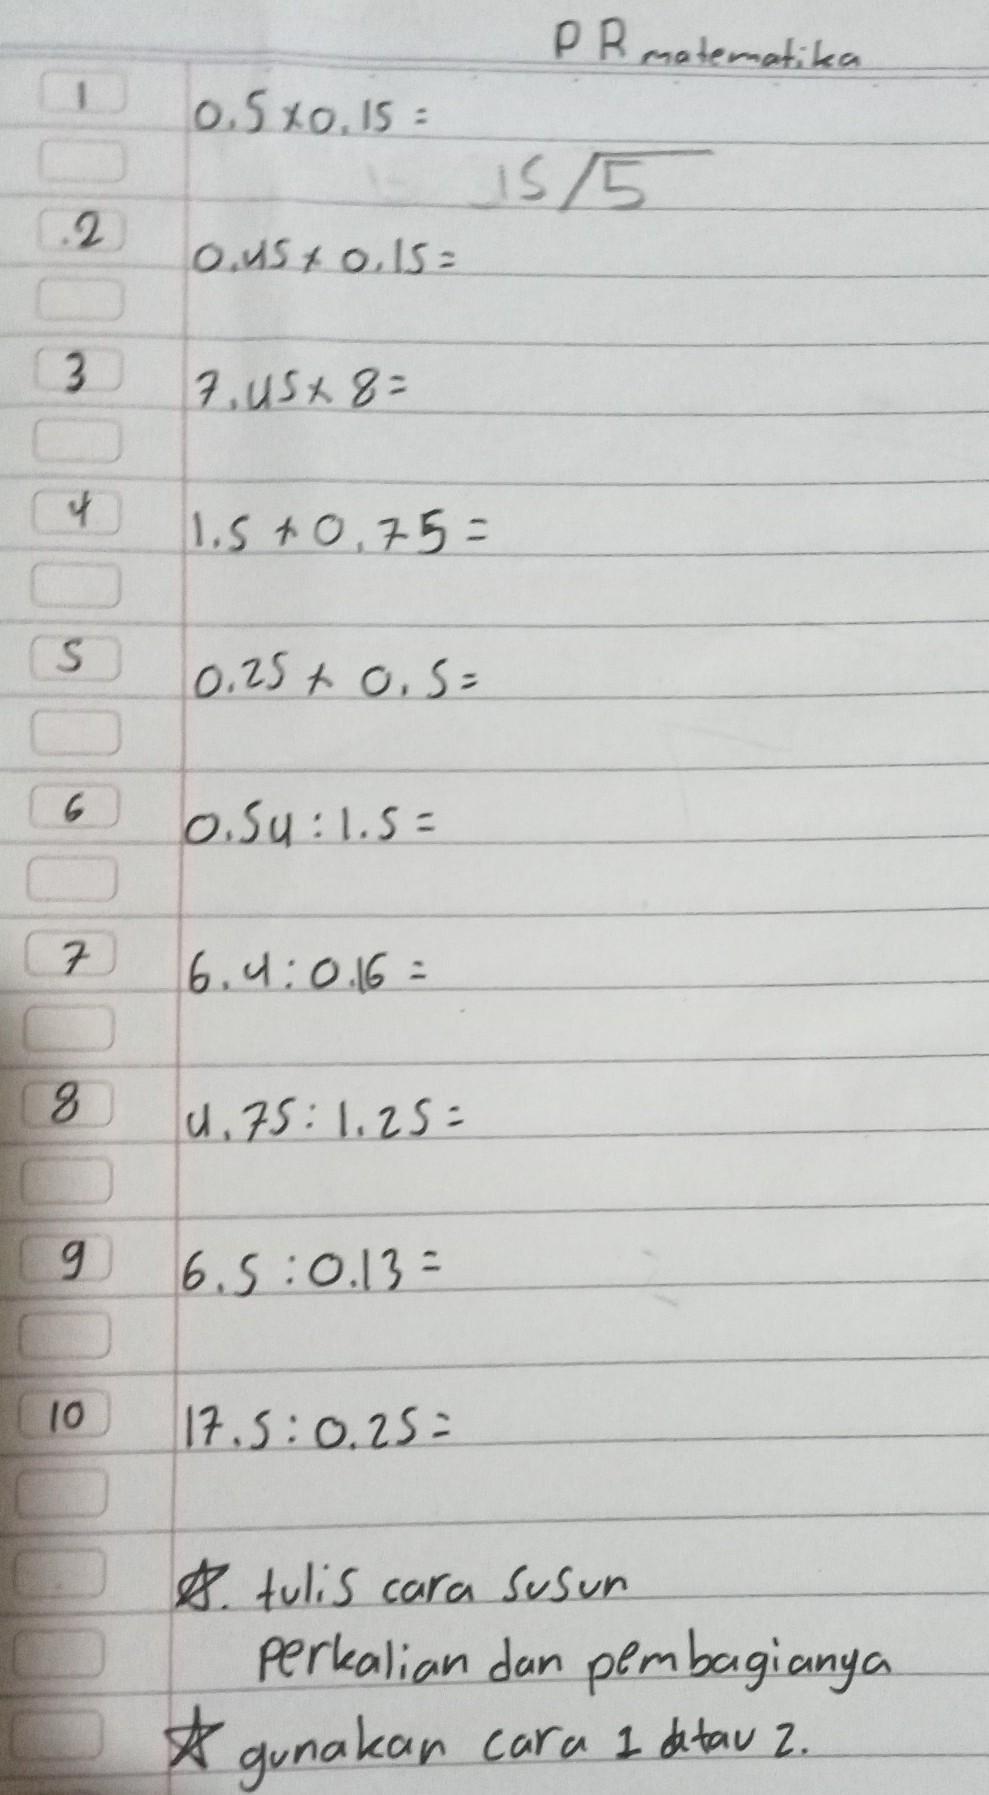 PR matematika
1 0.5 x 0.15 =
15/5
.2 0.45 x 0.15 =
3 7.45 x 8 =
4 1.5 x 0.75 =
5 0.25 x 0.5 =
6 0.54 : 1.5 =
7 6.4 : 0.16 =
8 4.75 : 1.25 =
9 6.5 : 0.13 =
10 17.5 : 0.25 =
☆. tulis cara susun
perkalian dan pembagianya
☆ gunakan cara 1 atau 2.